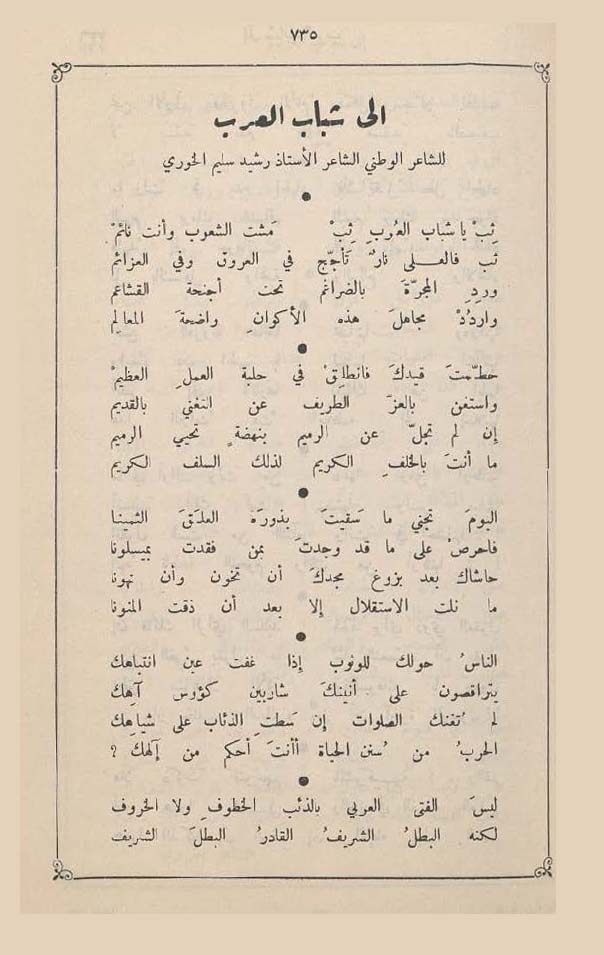 ٧٣٥
الى شباب العرب
للشاعر الوطني الشاعر الأستاذ رشيد سليم الخوري
ثِبْ يا شباب العُربِ ثِبْ مشت الشعوب وأنت نائمْ
ثب فالعلى نارٌ تأجّج في العروق وفي العزائم
وردِ المجرّةَ بالضراغم تحت أجنحة القشاعم
واردُدْ مجاهلَ هذه الأكوانِ واضحةَ المعالم
حطّمتَ قيدكَ فانطلقْ في حلبة العملِ العظيمْ
واستغن بالعزّ الطريف عن التغني بالقديم
إن لم تجلّ عن الرميم بنهضةٍ تحيي الرميم
ما أنتَ بالخلفِ الكريم لذلك السلف الكريم
اليومَ تجني ما سَقيتَ بذورَه العلَقَ الثمينا
فاحرصْ على ما قد وجدتَ بمن فقدت بميسلونا
حاشاك بعد بزوغ مجدكَ أن تخون وأن تهونا
ما نلت الاستقلال إلا بعد أن ذقت المنونا
الناسُ حولك للوثوب إذا غفت عين انتباهك
يتراقصون على أنينكَ شاربين كؤوس آهك
لم تُغنك الصلوات إن سَطتِ الذئاب على شياهك
الحربُ من سُنن الحياة أأنتَ أحكم من إلهك ؟
ليسَ الفتى العربي بالذئب الخطوفِ ولا الخروف
لكنه البطلُ الشريفُ القادرُ البطلَ الشريف